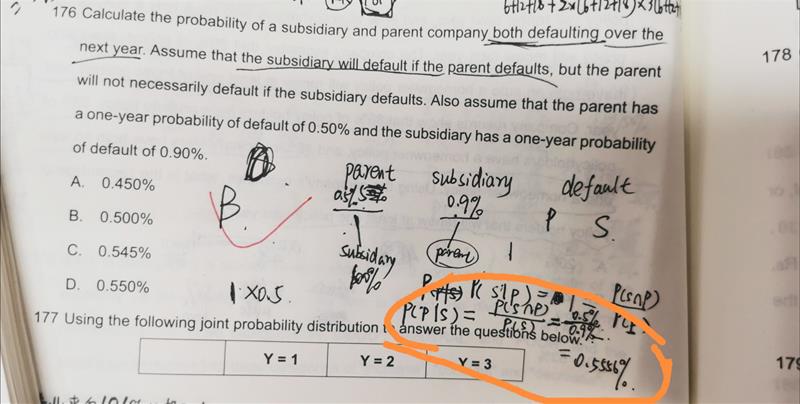 6+12+18+2×(6+12+18)×3(6+12+
176 Calculate the probability of a subsidiary and parent company both defaulting over the
next year. Assume that the subsidiary will default if the parent defaults, but the parent
will not necessarily default if the subsidiary defaults. Also assume that the parent has
a one-year probability of default of 0.50% and the subsidiary has a one-year probability
of default of 0.90%.
A. 0.450%
B. 0.500%
C. 0.545%
D. 0.550%
A.
B.
parent subsidiary default
0.5% 0.9% P S.
subsidary parent 1
100%
1×0.5.
P(S|P) = 1 = P(S∩P)
P(P)
P(P|S) = P(S∩P) = 0.5%
P(S) 0.9%
= 0.5556%
177 Using the following joint probability distribution to answer the questions below.
Y = 1 Y = 2 Y = 3
178
179